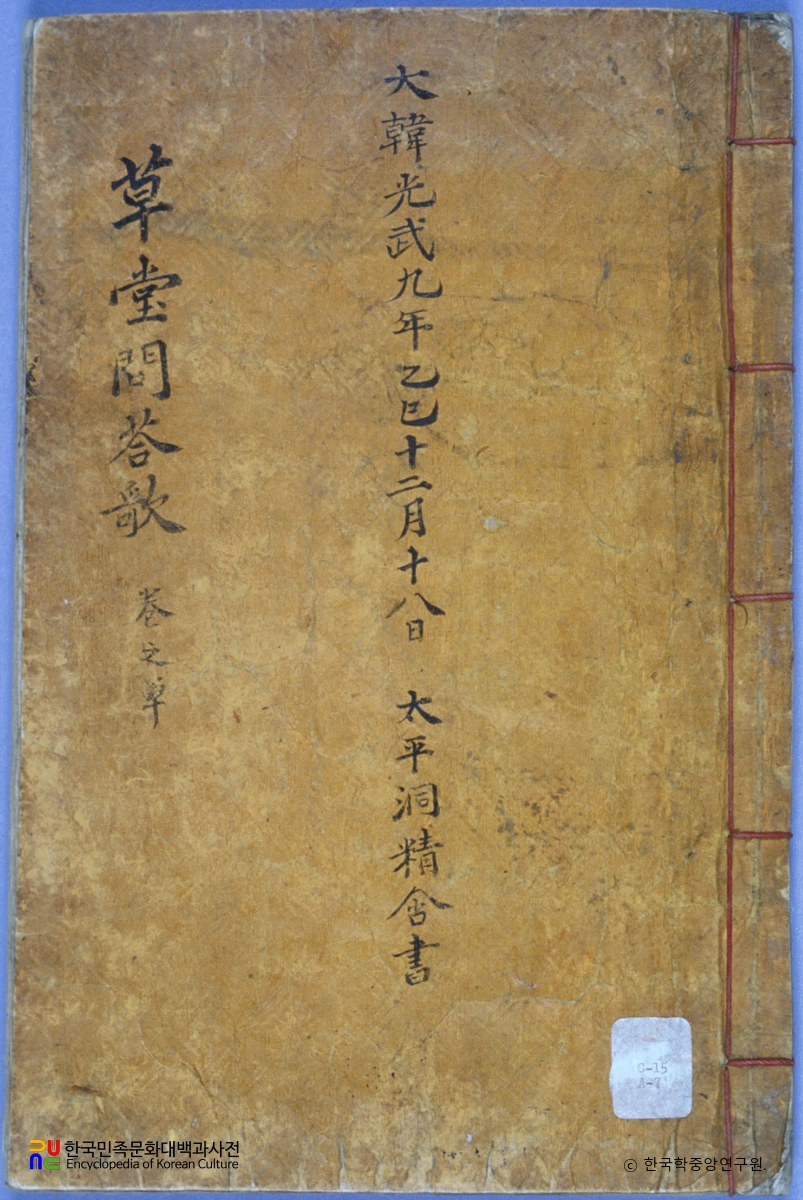 大韓光武九年乙巳十二月十八日 太平洞精舍書
草堂問荅歌 卷之单
C-15
A-7
한국민족문화대백과사전
Encyclopedia of Korean Culture
© 한국학중앙연구원